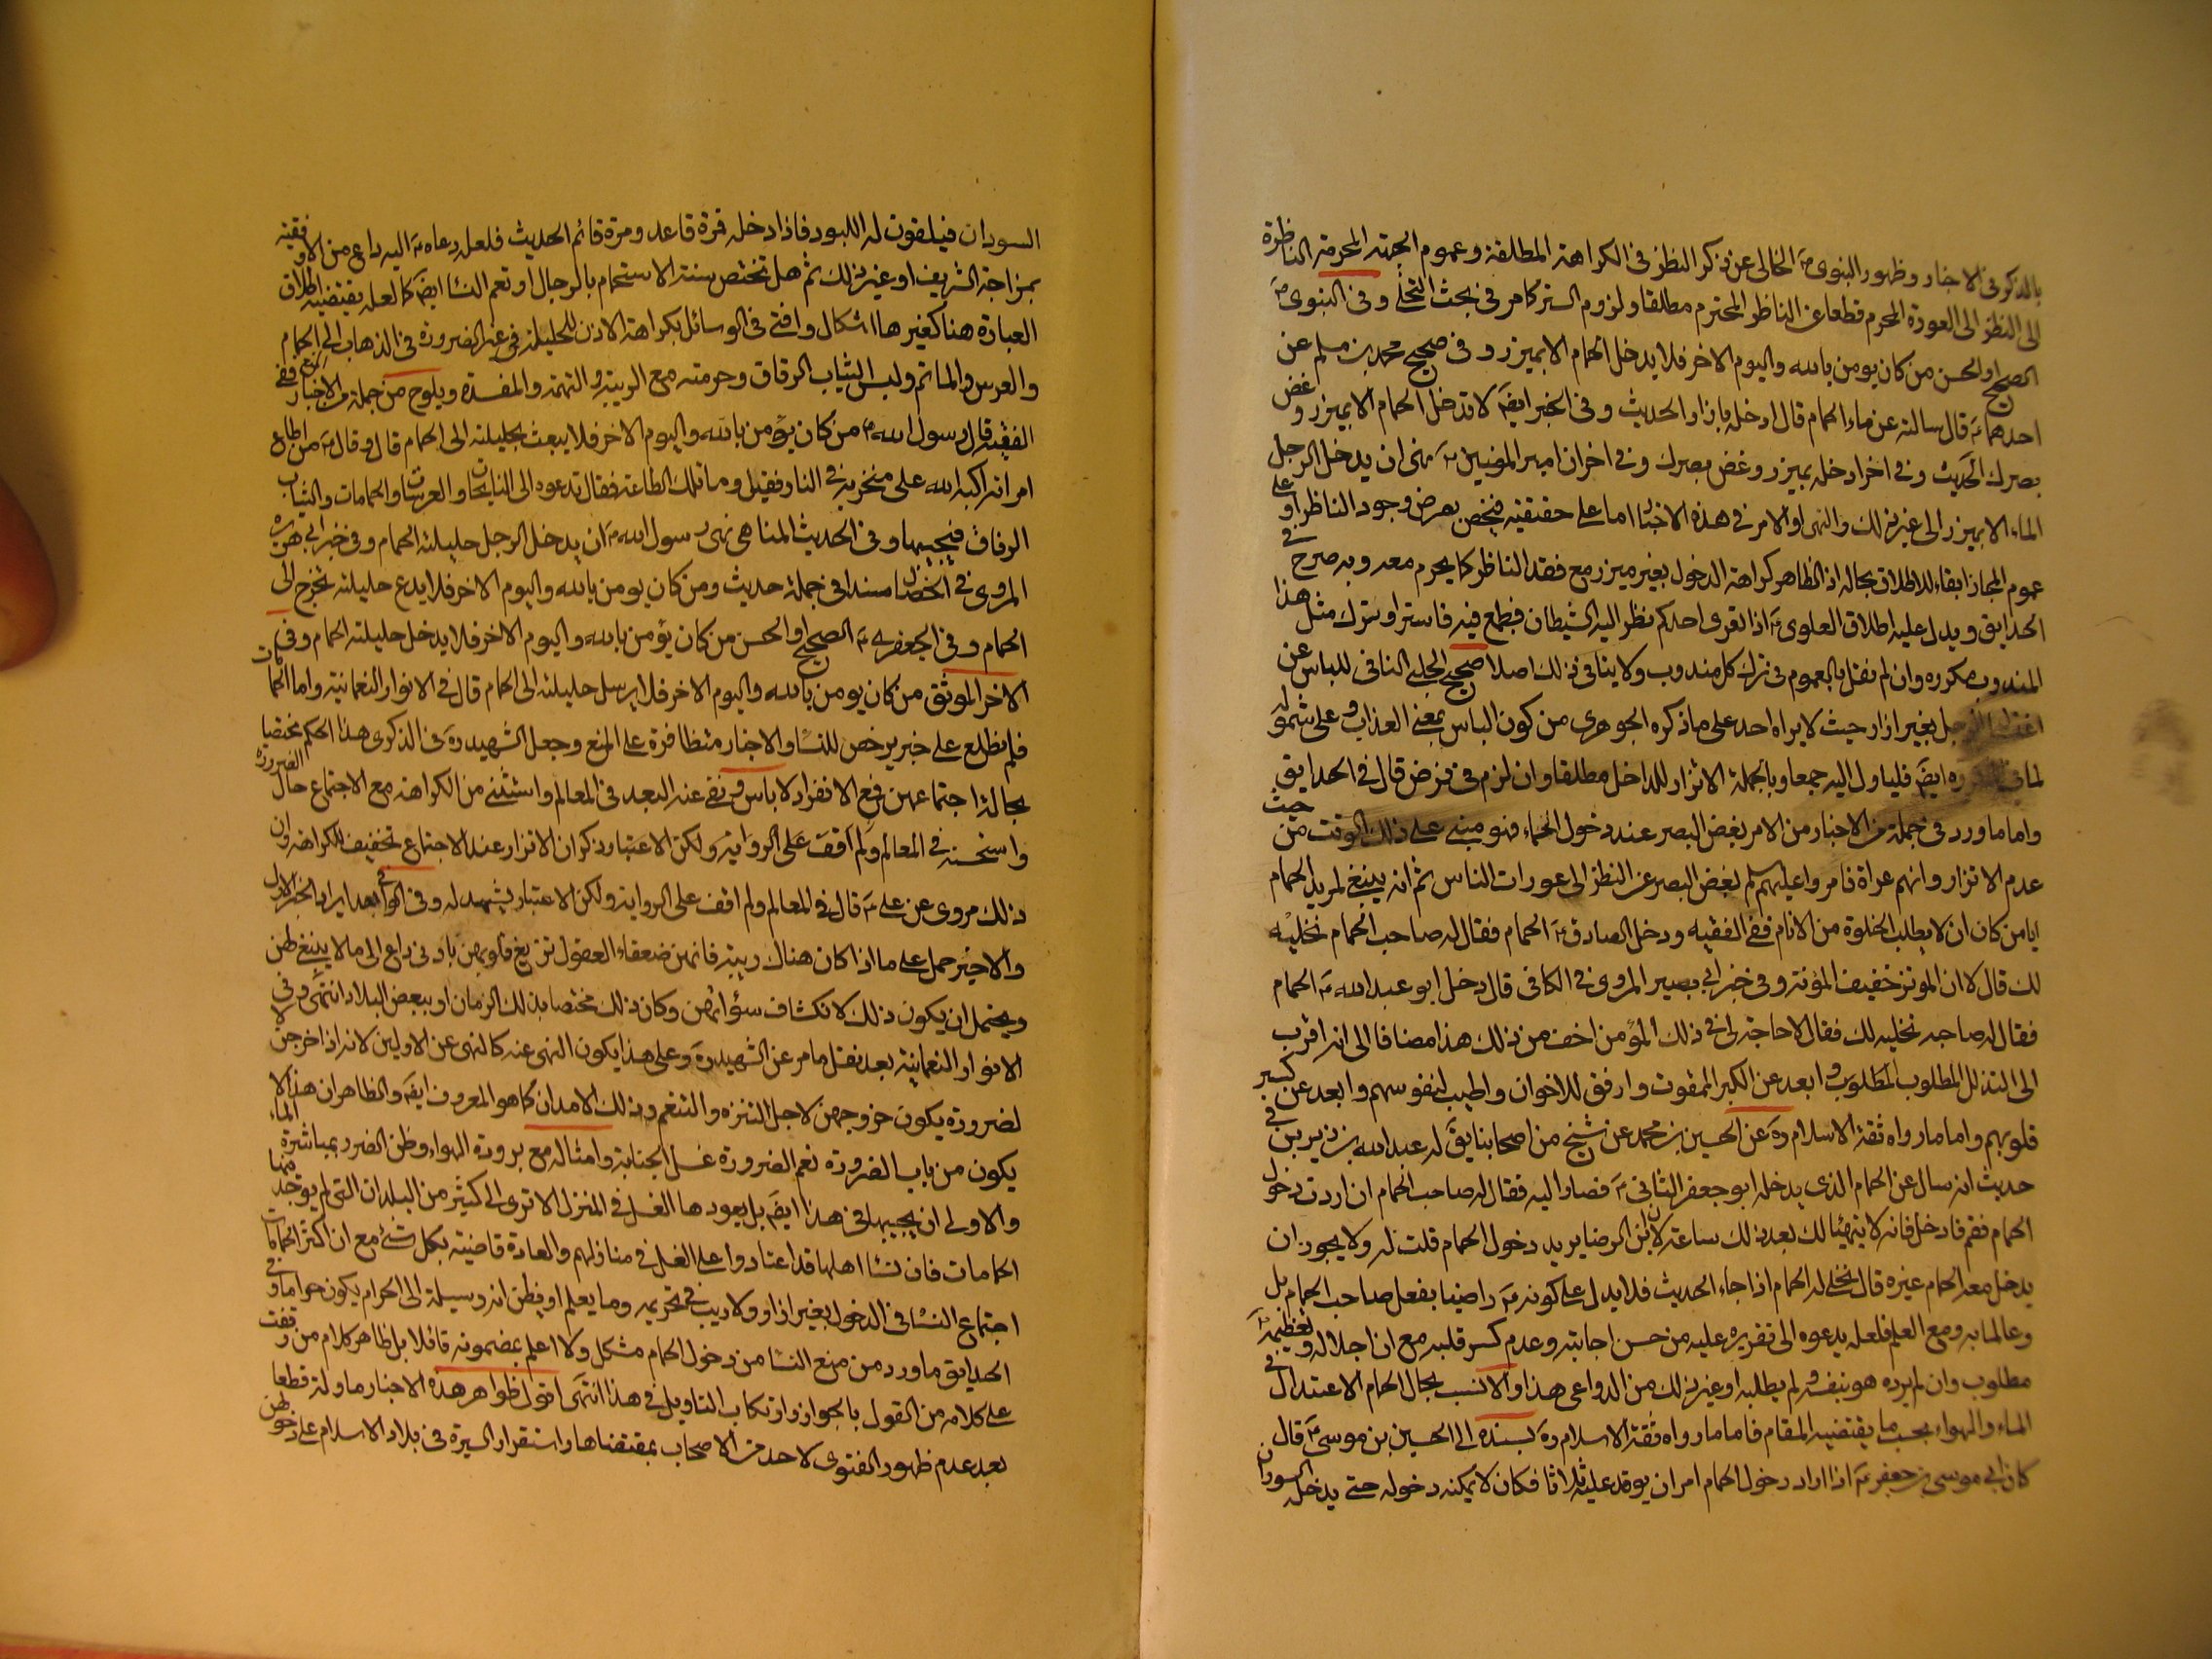 بالذكر فى الاخبار وظهور النبوى ص الخالى عن ذكر النظر فى الكراهة المطلقة وعموم الجهة المحرمة الناظرة
الى النظر الى العورة المحرم قطعا عن الناظر المحترم مطلقا ولزوم الستر كما مر فى بحث التخلى وفى النبوى ص
الصحيح او الحسن من كان يومن بالله واليوم الاخر فلا يدخل الحمام الا بميزر وفى صحيح محمد بن مسلم عن
احدهما ع قال سالته عن ماء الحمام قال ادخله بازار الحديث وفى الخبر ايضا لا تدخل الحمام الا بميزر وغض
بصرك الحديث وفى اخر ادخله بميزر وغض بصرك وفى اخر ان امير المومنين ع نهى ان يدخل الرجل
الماء الا بميزر الى غير ذلك والنهى او الامر فى هذه الاخبار اما على حقيقته فيخص بفرض وجود الناظر او على
عموم المجاز ابقاء للاطلاق بحاله اذ الظاهر كراهة الدخول بغير ميزر مع فقد الناظر كما يحرم معه وبه صرح فى
الحدايق ويدل عليه اطلاق العلوى ع اذا تعرى احدكم نظر اليه الشيطان فطمع فيه فاستتروا وترك مثل هذا
المندوب مكروه وان لم نقل بالعموم فى ترك كل مندوب ولا ينافى ذلك اصلا صحيح الحلبى النافى للباس عن
اغتسال الرجل بغير ازار حيث لا يراه احد على ما ذكره الجوهرى من كون الباس بمعنى العذاب وعلى شموله
لما فى المكروه ايضا فليأول اليه جمعا وبالجملة الاتزار للداخل مطلقا وان لزم فى فرض قال فى الحدايق
واما ما ورد فى جملة من الاخبار من الامر بغض البصر عند دخول الحمام فهو مبنى على ذلك الوقت من حيث
عدم الاتزار وانهم عراة فامروا عليهم السلام بغض البصر عن النظر الى عورات الناس ثم انه ينبغى لمريد الحمام
ايا من كان ان لا يطلب الخلوة من الانام ففى الفقيه ودخل الصادق ع الحمام فقال له صاحب الحمام نخليه
لك قال لا ان المومن خفيف المؤنة وفى خبر ابى بصير المروى فى الكافى قال دخل ابو عبد الله ع الحمام
فقال له صاحبه نخليه لك فقال لا حاجة لى فى ذلك المؤمن اخف من ذلك هذا مضافا الى انه اقرب
الى التذلل المطلوب المطلوب وابعد عن الكبر الممقوت وارفق للاخوان واطيب لنفوسهم وابعد عن كسر
قلوبهم واما ما رواه ثقة الاسلام ره عن الحسين بن محمد عن شيخ من اصحابنا يق له عبد الله بن زيربن فى
حديث انه سال عن الحمام الذى يدخله ابو جعفر الثانى ع فصار اليه فقال له صاحب الحمام ان اردت دخول
الحمام فقم فادخل فانه لا يتهيئا لك بعد ذلك ساعة لان ابن الرضا يريد دخول الحمام قلت له ولا يجوز ان
يدخل معه الحمام غيره قال نخلى له الحمام اذا جاء الحديث فلا يدل على كونه ع راضيا بفعل صاحب الحمام بل
وعالما به ومع العلم فلعله يدعوه الى تقريره عليه من حسن اجابته وعدم كسر قلبه مع ان اجلاله وتعظيمه ع
مطلوب وان لم يرده هو بنفسه ولم يطلبه او غير ذلك من الدواعى هذا والانسب بحال الحمام الاعتدال فى
الماء والهواء بحسب ما يقتضيه المقام فاما ما رواه ثقة الاسلام ره بسنده الى الحسين بن موسى ع قال
كان ابى موسى بن جعفر ع اذا اراد دخول الحمام امر ان يوقد عليه ثلاثا فكان لا يمكنه دخوله حتى يدخله السودان
السودان فيلقون له اللبود فاذا دخله فمرة قاعد ومرة قائم الحديث فلعل دعاه ع اليه داع من الاوفقيه
بمزاجه الشريف او غير ذلك ثم هل تختص سنة الاستحمام بالرجال او تعم النسا ايضا كما لعله يقتضيه اطلاق
العبارة هنا كغيرها اشكال وافتى فى الوسائل بكراهة الاذن للحليلة فى غير الضرورة فى الذهاب الى الحمام
والعرس والماتم ولبس الثياب الرقاق وحرمته مع الريبة والتهمة والمفسدة ويلوح من جملة من الاخبار المنع ففى
الفقيه قال رسول الله ص من كان يؤمن بالله واليوم الاخر فلا يبعث بحليلته الى الحمام قال وقال ع من اطاع
امراته اكبه الله على منخريه فى النار فقيل وما تلك الطاعة فقال تدعوه الى النايحات والعرسات والحمامات والثياب
الرقاق فيجيبها وفى الحديث المناهى نهى رسول الله ص ان يدخل الرجل حليلته الحمام وفى خبر ابى هريره
المروى فى الخصال مسندا فى جملة حديث ومن كان يومن بالله واليوم الاخر فلا يدع حليلته تخرج الى
الحمام وفى الجعفرى ع الصحيح او الحسن من كان يؤمن بالله واليوم الاخر فلا يدخل حليلته الحمام وفى
الاخر الموثق من كان يومن بالله واليوم الاخر فلا يرسل حليلته الى الحمام قال فى الانوار النعمانية واما الحمامات
فلم نطلع على خبر يرخص للنسا والاخبار متظافرة على المنع وجعل الشهيد ره فى الذكرى هذا الحكم مختصا
بحالة اجتماعهن فمع الانفراد لا باس ونفى عنه البعد فى المعالم واستثنى من الكراهة مع الاجتماع حال الضرورة
واستحسنه فى المعالم ولم اقف على الرواية ولكن الاعتبار وذكر ان الاتزار عند الاجتماع تخفيف للكراهة وان
ذلك مروى عن على ع قال فى المعالم ولم اقف على الرواية ولكن الاعتبار يشهد له وفى الوافى بعد ايراد الخبر الاول
والاخير حمل على ما اذا كان هناك ريبة فانهن ضعفاء العقول تزيغ قلوبهن بادنى داع الى ما لا ينبغى لهن
ويحتمل ان يكون ذلك لانكشاف سؤاتهن وكان ذلك مختصا بذلك الزمان او ببعض البلاد انتهى وفى
الانوار النعمانية بعد نقل ما مر عن الشهيد ره وعلى هذا يكون النهى عنه كالنهى عن الاولين لانه اذا خرجن لا
لضرورة يكون خروجهن لاجل التنزه والتنعم وذلك الامدان كما هو المعروف ايضا والظاهر ان هذا لا
يكون من باب الضرورة نعم الضرورة غسل الجنابة وامثاله مع برودة الهواء وظن الضرر بمباشرة الماء
والاولى ان يجيبها فى هذا ايضا بل يعودها الغسل فى المنزل الا ترى الى كثير من البلدان التى لم يوجد فيها
الحمامات فان نسا اهلها قد اعتادوا على الغسل فى منازلهم والعادة قاضية بكل شئ مع ان اكثر الحمامات
اجتماع النسا فى الدخول بغير ازار ولا ريب فى تحريمه وما يعلم او يظن انه وسيلة الى الحرام يكون حراما وفى
الحدايق ما ورد من منع النسا من دخول الحمام مشكل ولا اعلم بمضمونه قائلا بل ظاهر كلام من وقفت
على كلامه من القول بالجواز وارتكاب التاويل فى هذا انتهى اقول ظواهر هذه الاخبار ماولة قطعا
بعد عدم ظهور الفتوى لاحد من الاصحاب بمقتضاها واستقرار السيرة فى بلاد الاسلام على دخولهن